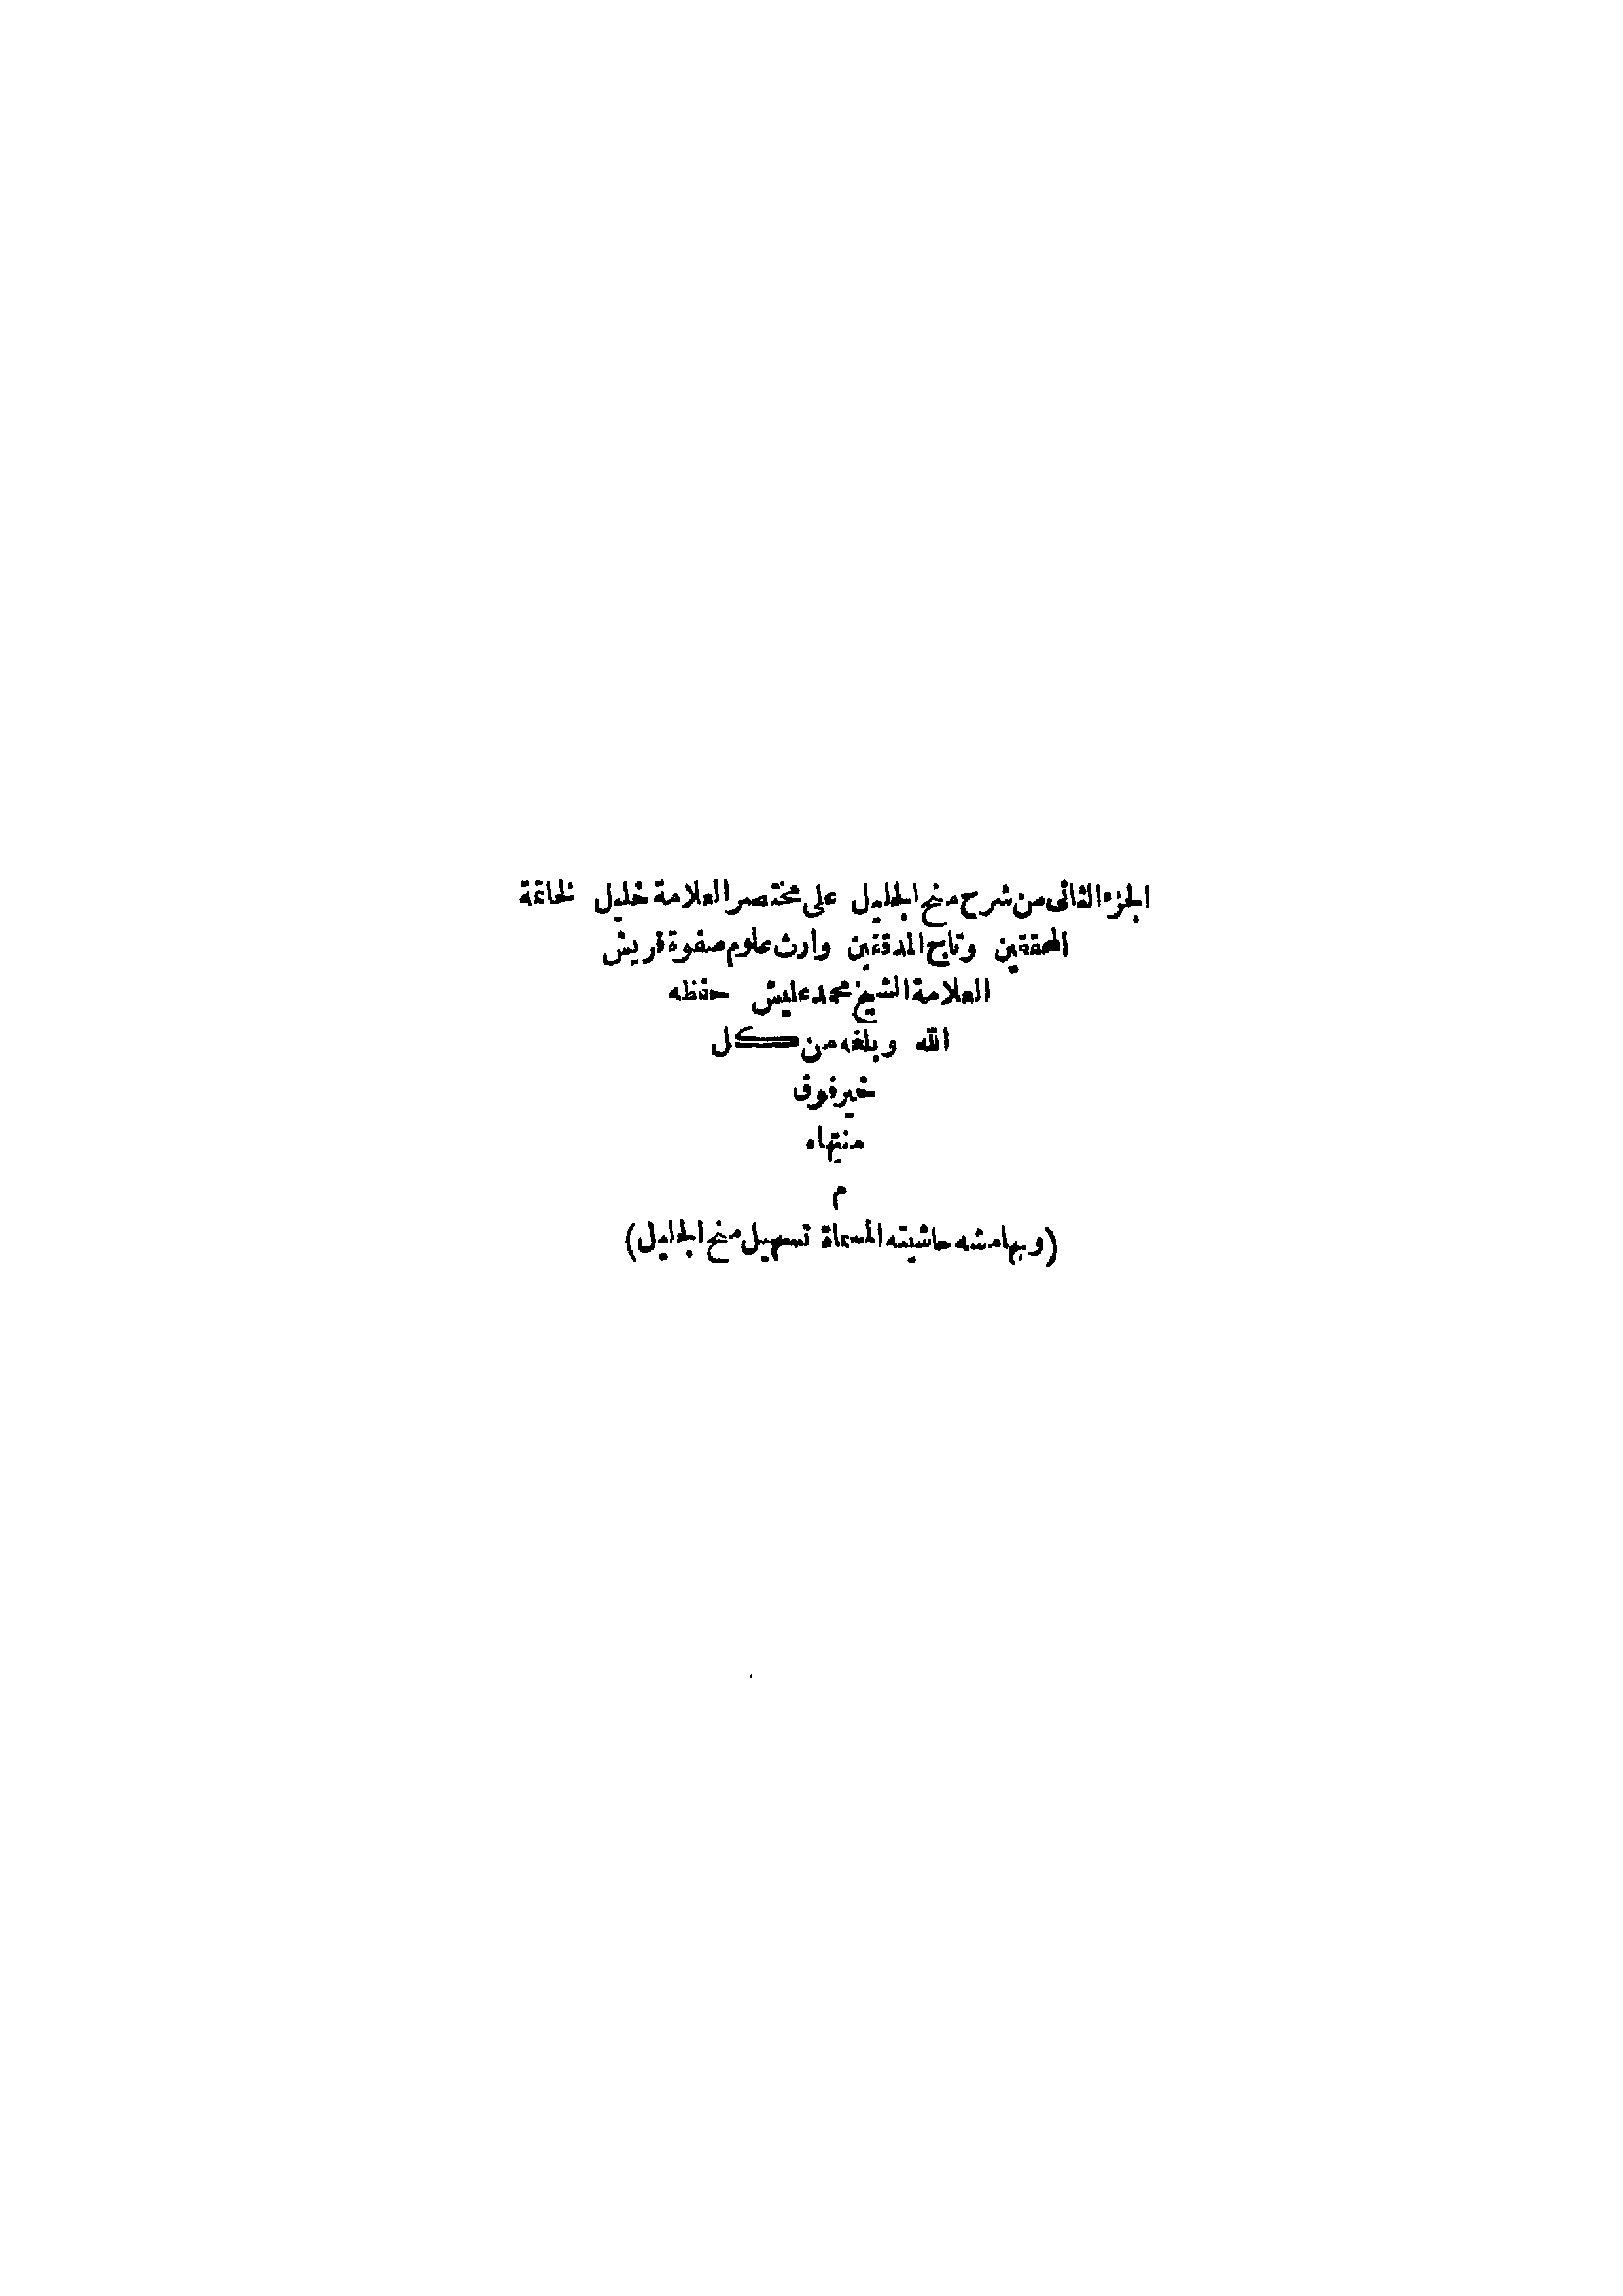 الجزء الثانى من شرح منح الجليل على مختصر العلامة خليل لخاتمة
المحققين وتاج المدققين وارث علوم صفوة قريش
العلامة الشيخ محمد عليش حفظه
الله وبلغه من كل
خير فوق
منتهاه
م
(وبهامشه حاشيته المسماة تسهيل منح الجليل)